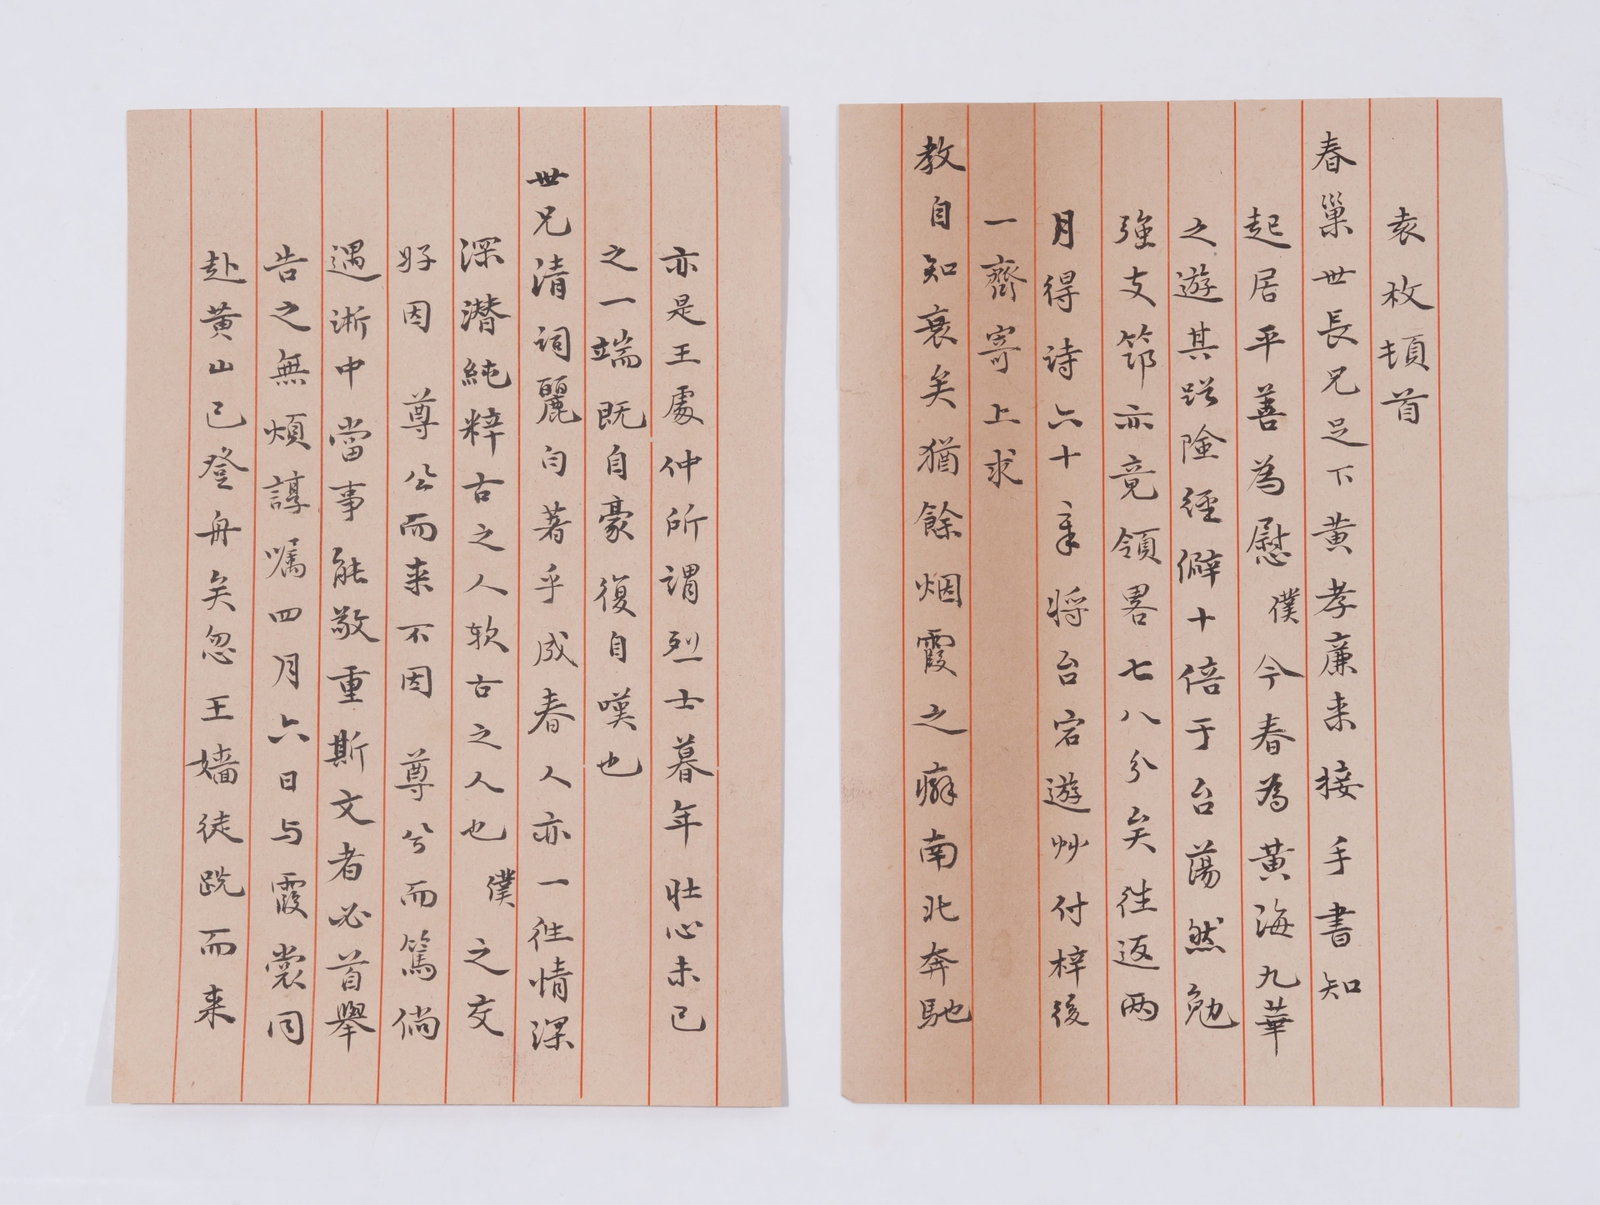 袁枚頓首
春巢世長兄足下黃孝廉来接手書知
起居平善為慰僕今春為黃海九華
之遊其蹤險經僻十倍于台蕩然勉
強支笻亦竟領畧七八分矣往返两
月得詩六十章将台宕遊艸付梓後
一齊寄上求
教自知衰矣猶餘烟霞之癖南北奔馳
亦是王處仲所謂烈士暮年壯心未已
之一端既自豪復自嘆也
世兄清詞麗句著乎成春人亦一往情深
深潜純粹古之人欤古之人也僕之交
好因尊公而来不因尊公而篤倘
遇淅中當事能敬重斯文者必首舉
告之無煩諄嘱四月六日与霞裳同
赴黄山已登舟矣忽王嬙徒跣而来